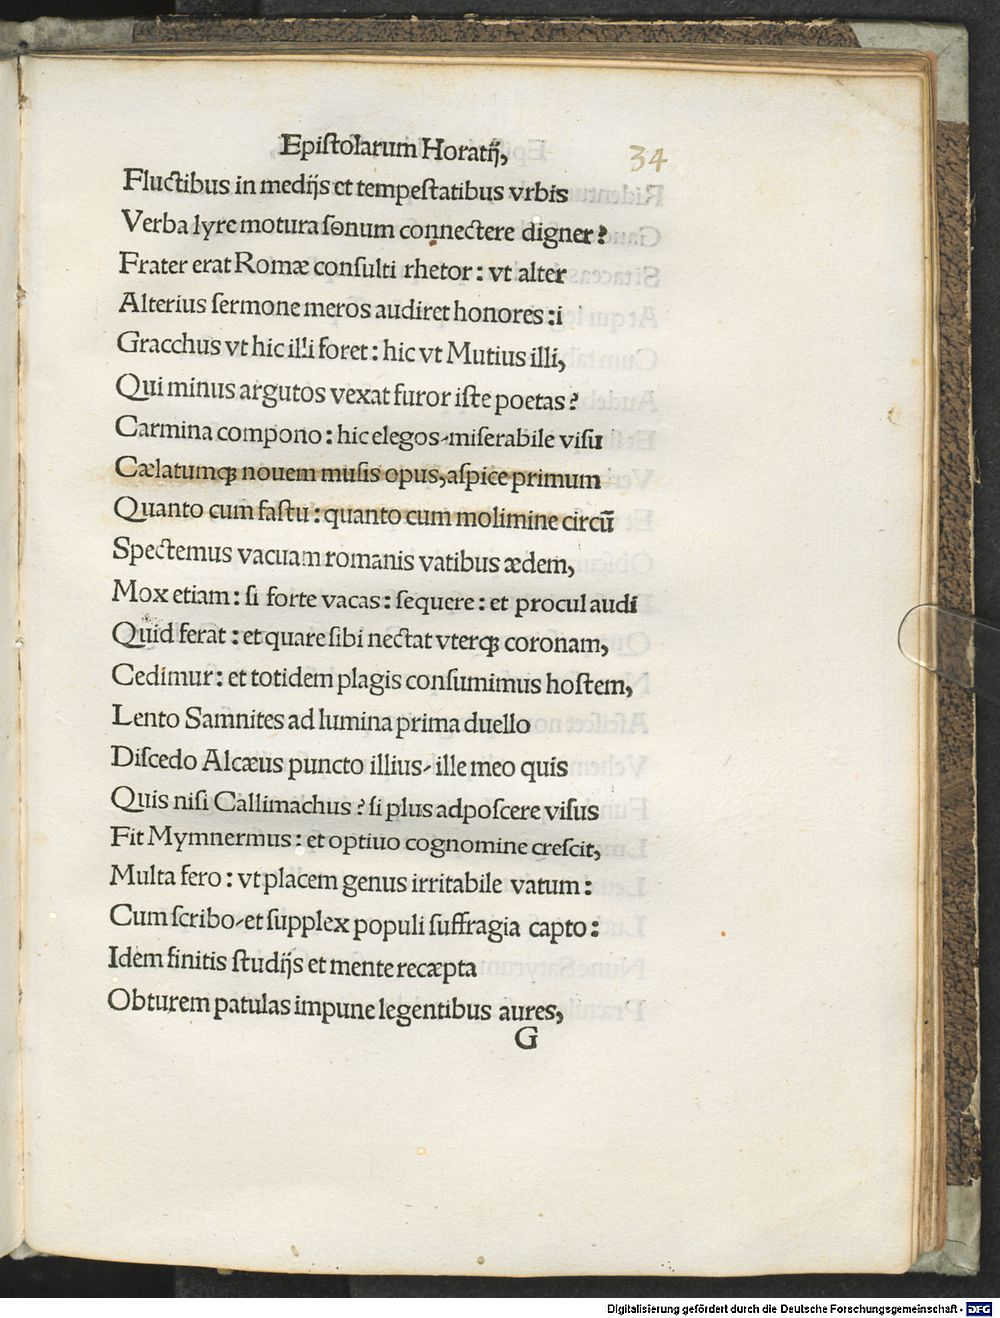 Epistolarum Horatij,
34
Fluctibus in medijs et tempestatibus vrbis
Verba lyre motura sonum connectere digner?
Frater erat Romæ consulti rhetor: vt alter
Alterius sermone meros audiret honores:i
Gracchus vt hic illi foret: hic vt Mutius illi,
Qui minus argutos vexat furor iste poetas?
Carmina compono: hic elegos-miserabile visu
Cælatumqꝫ nouem musis opus,aspice primum
Quanto cum fastu: quanto cum molimine circũ
Spectemus vacuam romanis vatibus ædem,
Mox etiam: si forte vacas: sequere: et procul audi
Quid ferat: et quare sibi nectat vterqꝫ coronam,
Cedimur: et totidem plagis consumimus hostem,
Lento Samnites ad lumina prima duello
Discedo Alcæus puncto illius- ille meo quis
Quis nisi Callimachus? si plus adposcere visus
Fit Mymnermus: et optiuo cognomine crescit,
Multa fero: vt placem genus irritabile vatum:
Cum scribo-et supplex populi suffragia capto:
Idem finitis studijs et mente recæpta
Obturem patulas impune legentibus aures,
G
Digitalisierung gefördert durch die Deutsche Forschungsgemeinschaft - DFG